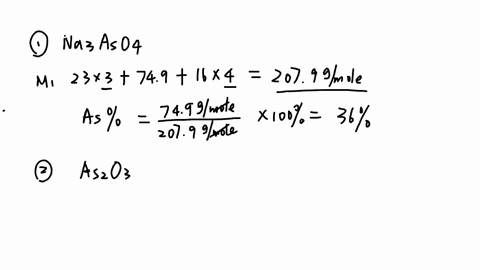 ① Na3AsO4
M1 23×3 + 74.9 + 16×4 = 207.9 g/mole
As% = 74.9 g/mole / 207.9 g/mole ×100% = 36%
② As2O3